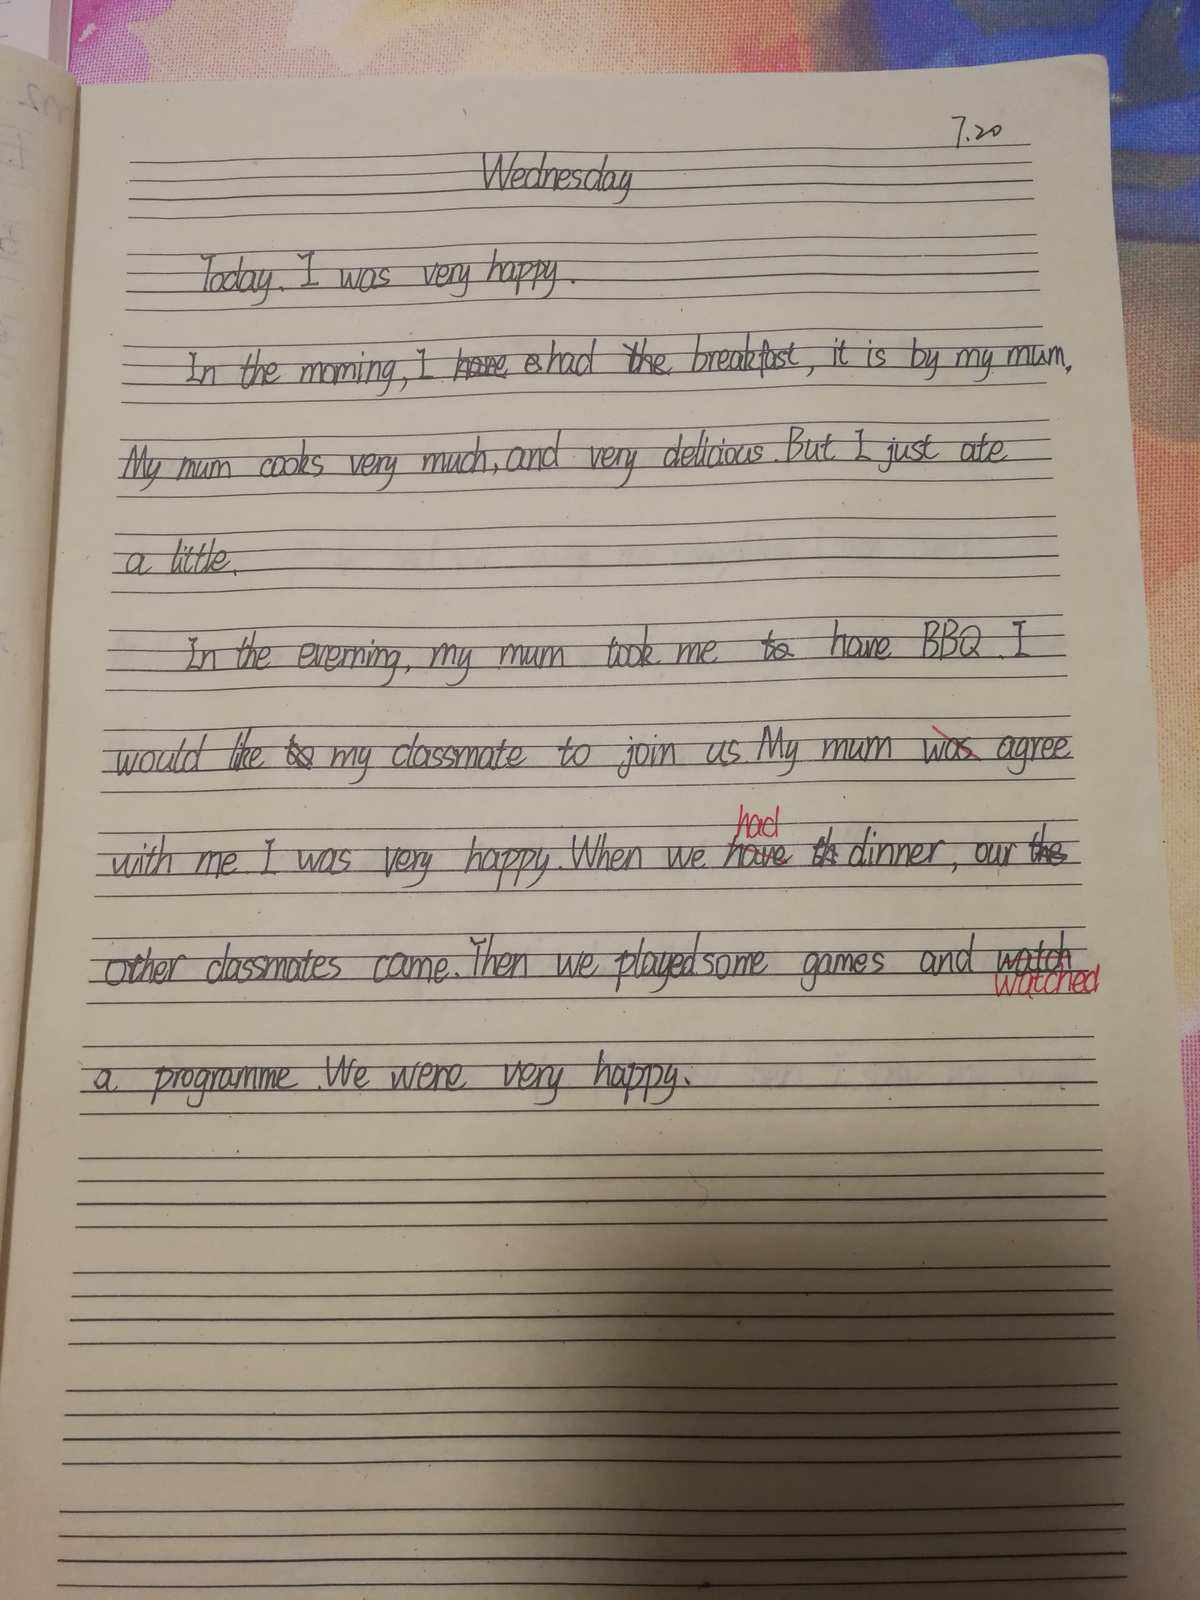 7.20
Wednesday
Today. I was very happy.
In the morning, I had the breakfast, it is by my mum,
My mum cooks very much, and very delicious. But I just ate
a little.
In the evening, my mum took me to have BBQ. I
would like my classmate to join us. My mum was agree
with me. I was very happy. When we have had dinner, our
other classmates came. Then we played some games and watch
watched
a programme. We were very happy.